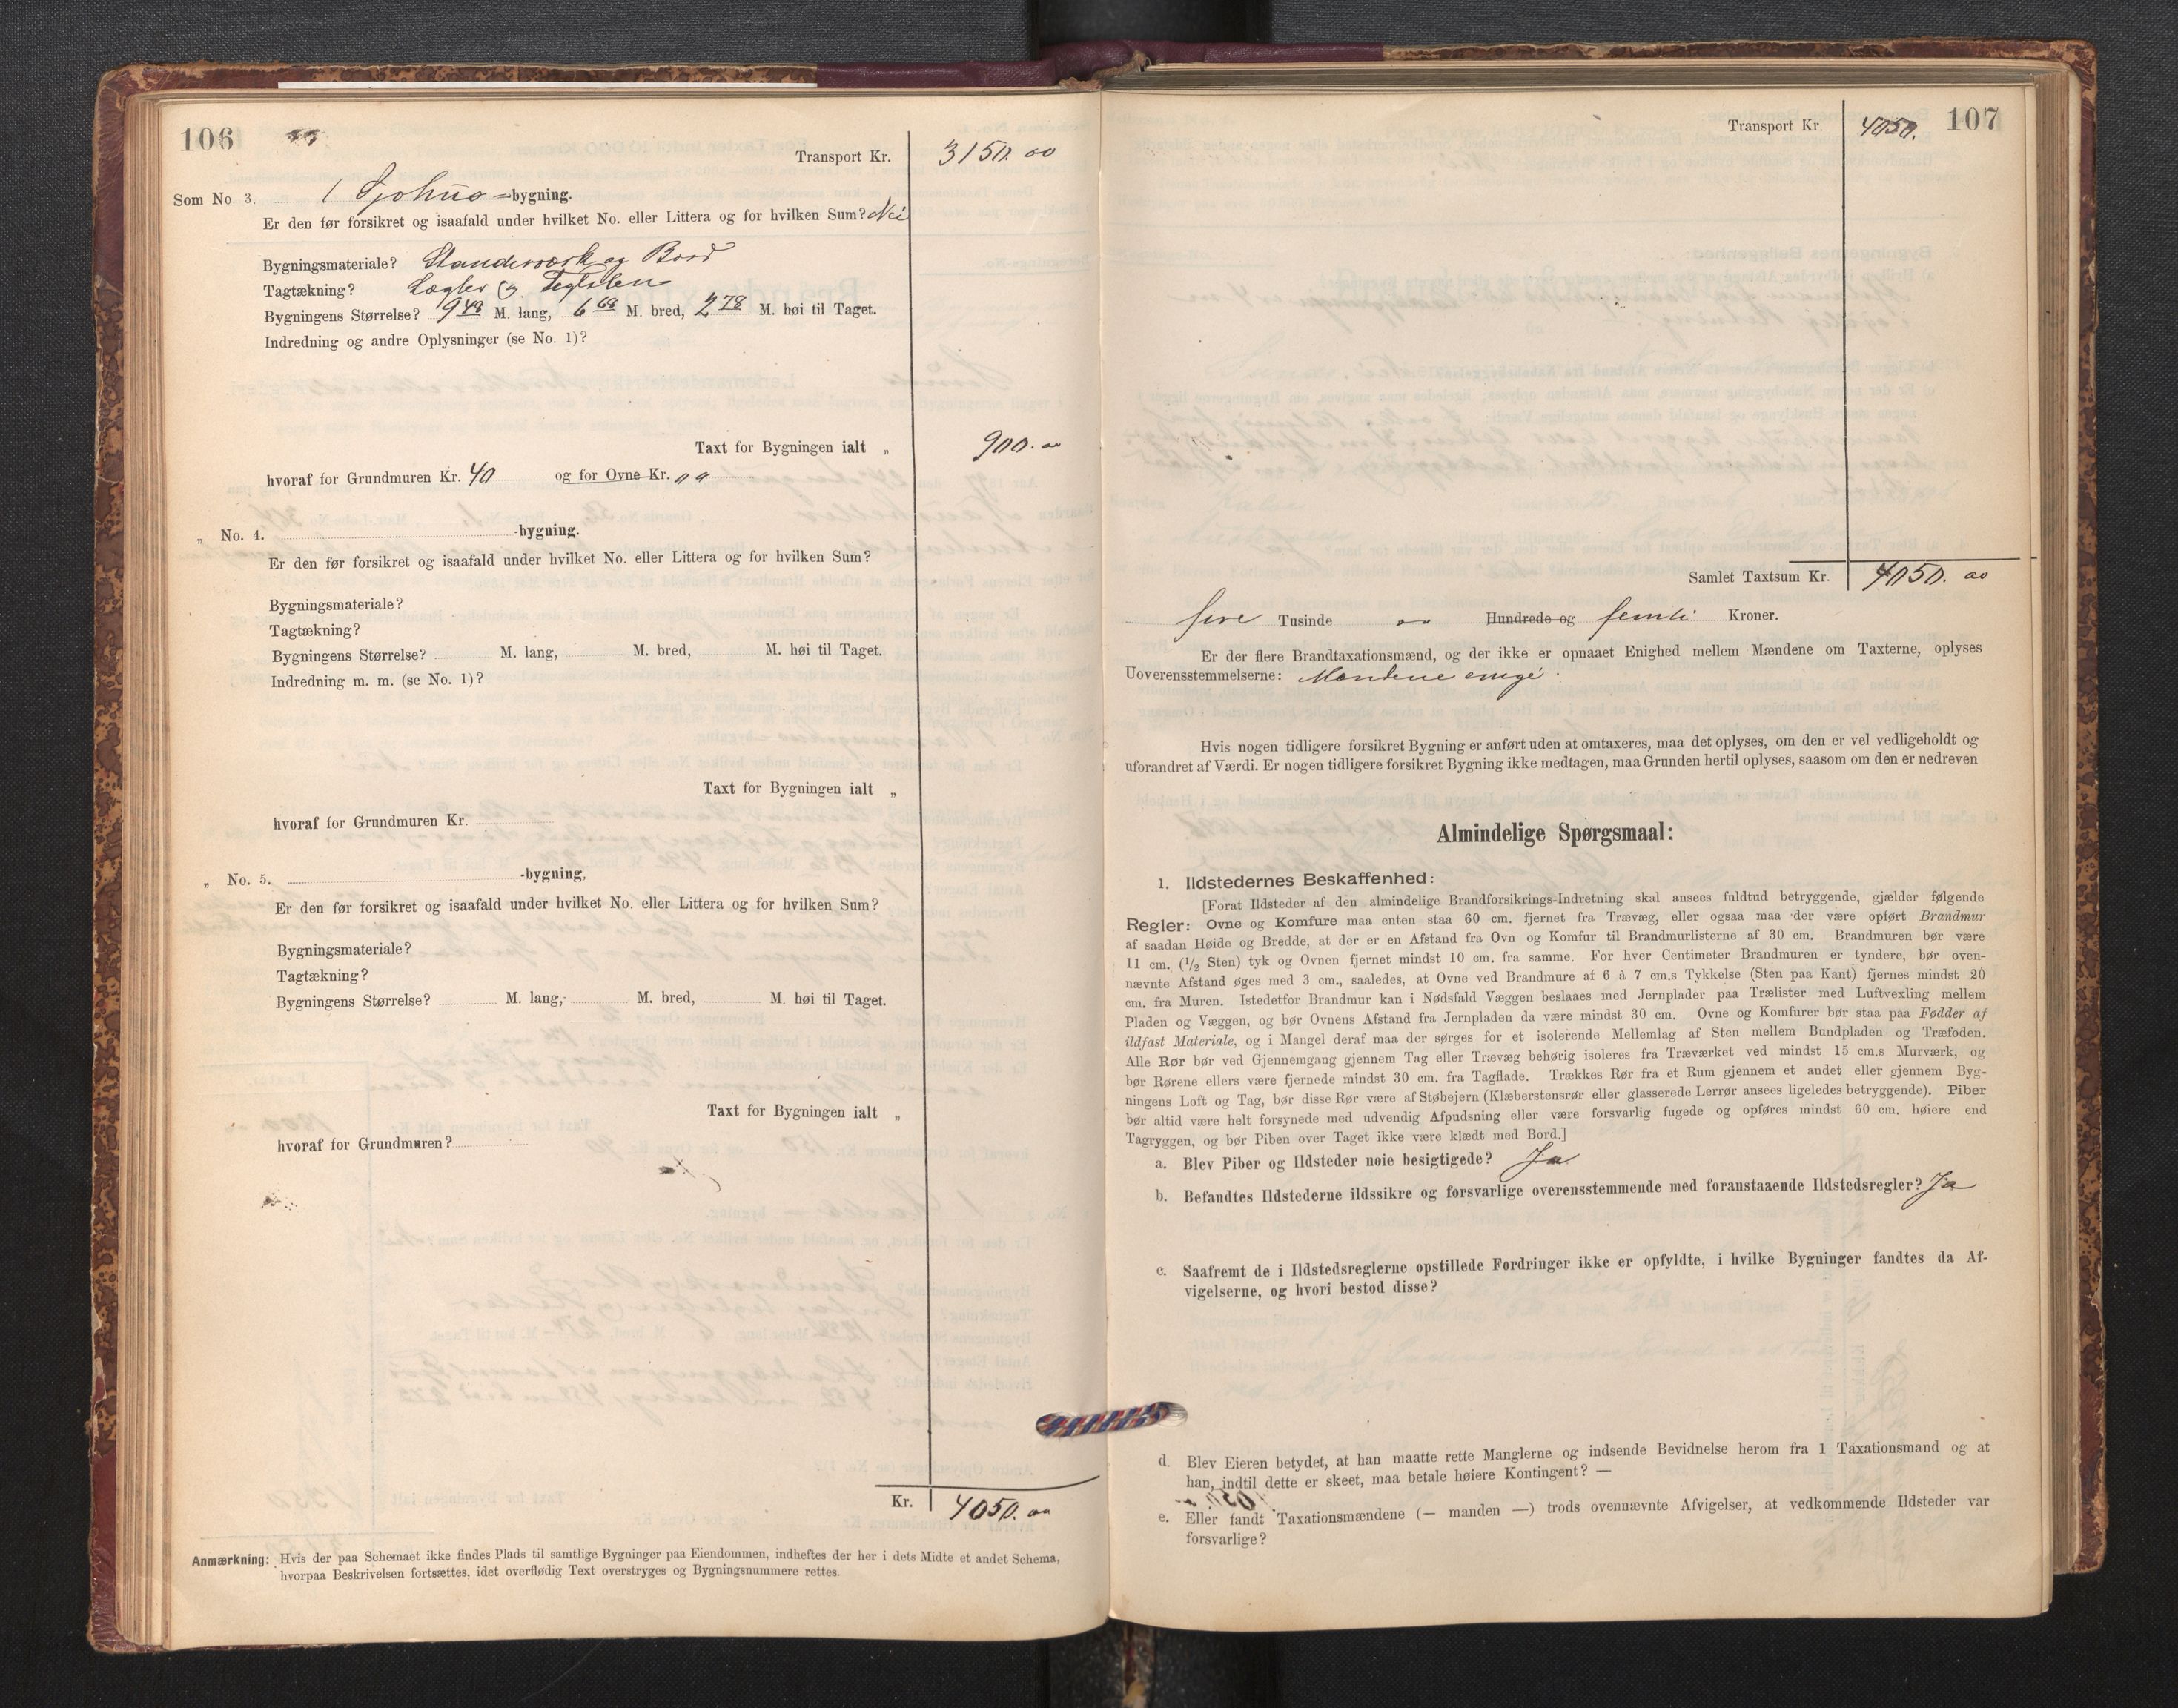 106
Transport Kr. 3150. 00
Som No 3. 1 Sjøhus -bygning.
Er den før forsikret og isaafald under hvilket No. eller Littera og for hvilken Sum? Nei
Bygningsmateriale? Standerværk og Bord
Tagtækning? Lægter og Teglsten
Bygningens Størrelse? 9 48 M. lang, 6 68 M. bred, 2 78 M. høi til Taget.
Indredning og andre Oplysninger (se No. 1)?
Taxt for Bygningen ialt „ 900. 00
hvoraf for Grundmuren Kr. 40 og for Ovne Kr. „ „
„ No. 4. -bygning.
Er den før forsikret og isaafald under hvilket No. eller Littera og for hvilken Sum?
Bygningsmateriale?
Tagtækning?
Bygningens Størrelse? M. lang, M. bred, M. høi til Taget.
Indredning m. m. (se No. 1)?
Taxt for Bygningen ialt „
hvoraf for Grundmuren Kr.
„ No. 5. -bygning,
Er den før forsikret og isaafald under hvilket No. eller Littera og for hvilken Sum?
Bygningsmateriale?
Tagtækning?
Bygningens Størrelse? M. lang, M. bred, M. høi til Taget.
Taxt for Bygningen ialt „
hvoraf for Grundmuren?
Kr. 4050. 00
Anmærkning: Hvis der paa Schemaet ikke findes Plads til samtlige Bygninger paa Eiendommen, indheftes der her i dets Midte et andet Schema,
hvorpaa Beskrivelsen fortsættes, idet overflødig Text overstryges og Bygningsnummere rettes.
107
Transport Kr. 4050.
Samlet Taxtsum Kr. 4050. 00
fire Tusinde Hundrede og femti Kroner.
Er der flere Brandtaxationsmænd, og der ikke er opnaaet Enighed mellem Mændene om Taxterne, oplyses
Uoverensstemmelserne: Mændene enige.
Hvis nogen tidligere forsikret Bygning er anført uden at omtaxeres, maa det oplyses, om den er vel vedligeholdt og
uforandret af Værdi. Er nogen tidligere forsikret Bygning ikke medtagen, maa Grunden hertil oplyses, saasom om den er nedreven
Almindelige Spørgsmaal:
1. Ildstedernes Beskaffenhed:
[Forat Ildsteder af den almindelige Brandforsikrings-Indretning skal ansees fuldtud betryggende, gjælder følgende
Regler: Ovne og Komfure maa enten staa 60 cm. fjernet fra Trævæg, eller ogsaa maa der være opført Brandmur
af saadan Høide og Bredde, at der er en Afstand fra Ovn og Komfur til Brandmurlisterne af 30 cm. Brandmuren bør være
11 cm. (1/2 Sten) tyk og Ovnen fjernet mindst 10 cm. fra samme. For hver Centimeter Brandmuren er tyndere, bør oven-
nævnte Afstand øges med 3 cm., saaledes, at Ovne ved Brandmure af 6 à 7 cm.s Tykkelse (Sten paa Kant) fjernes mindst 20
cm. fra Muren. Istedetfor Brandmur kan i Nødsfald Væggen beslaaes med Jernplader paa Trælister med Luftvexling mellem
Pladen og Væggen, og bør Ovnens Afstand fra Jernpladen da være mindst 30 cm. Ovne og Komfurer bør staa paa Fødder af
ildfast Materiale, og i Mangel deraf maa der sørges for et isolerende Mellemlag af Sten mellem Bundpladen og Træfoden.
Alle Rør bør ved Gjennemgang gjennem Tag eller Trævæg behørig isoleres fra Træværket ved mindst 15 cm.s Murværk, og
bør Rørene ellers være fjernede mindst 30 cm. fra Tagflade. Trækkes Rør fra et Rum gjennem et andet eller gjennem Byg-
ningens Loft og Tag, bør disse Rør være af Støbejern (Klæberstensrør eller glasserede Lerrør ansees ligeledes betryggende). Piber
bør altid være helt forsynede med udvendig Afpudsning eller være forsvarlig fugede og opføres mindst 60 cm. høiere end
Tagryggen, og bør Piben over Taget ikke være klædt med Bord.]
a. Blev Piber og Ildsteder nøie besigtigede? Ja
b. Befandtes Ildstederne ildssikre og forsvarlige overensstemmende med foranstaaende Ildstedsregler? Ja
c. Saafremt de i Ildstedsreglerne opstillede Fordringer ikke er opfyldte, i hvilke Bygninger fandtes da Af-
vigelserne, og hvori bestod disse?
d. Blev Eieren betydet, at han maatte rette Manglerne og indsende Bevidnelse herom fra 1 Taxationsmand og at
han, indtil dette er skeet, maa betale høiere Kontingent? —
e. Eller fandt Taxationsmændene (— manden —) trods ovennævnte Afvigelser, at vedkommende Ildsteder var
forsvarlige?